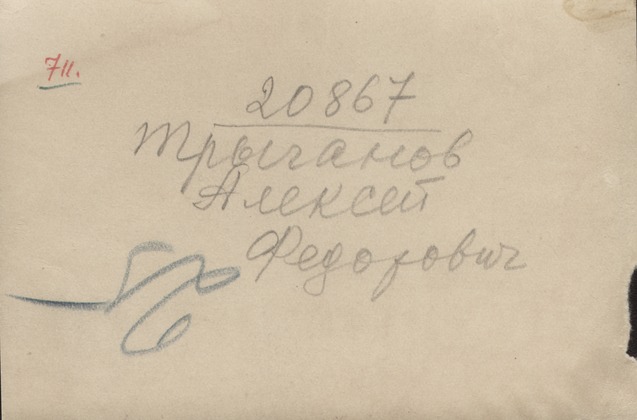 711.
20867
Трычанов
Алексей
Федорович